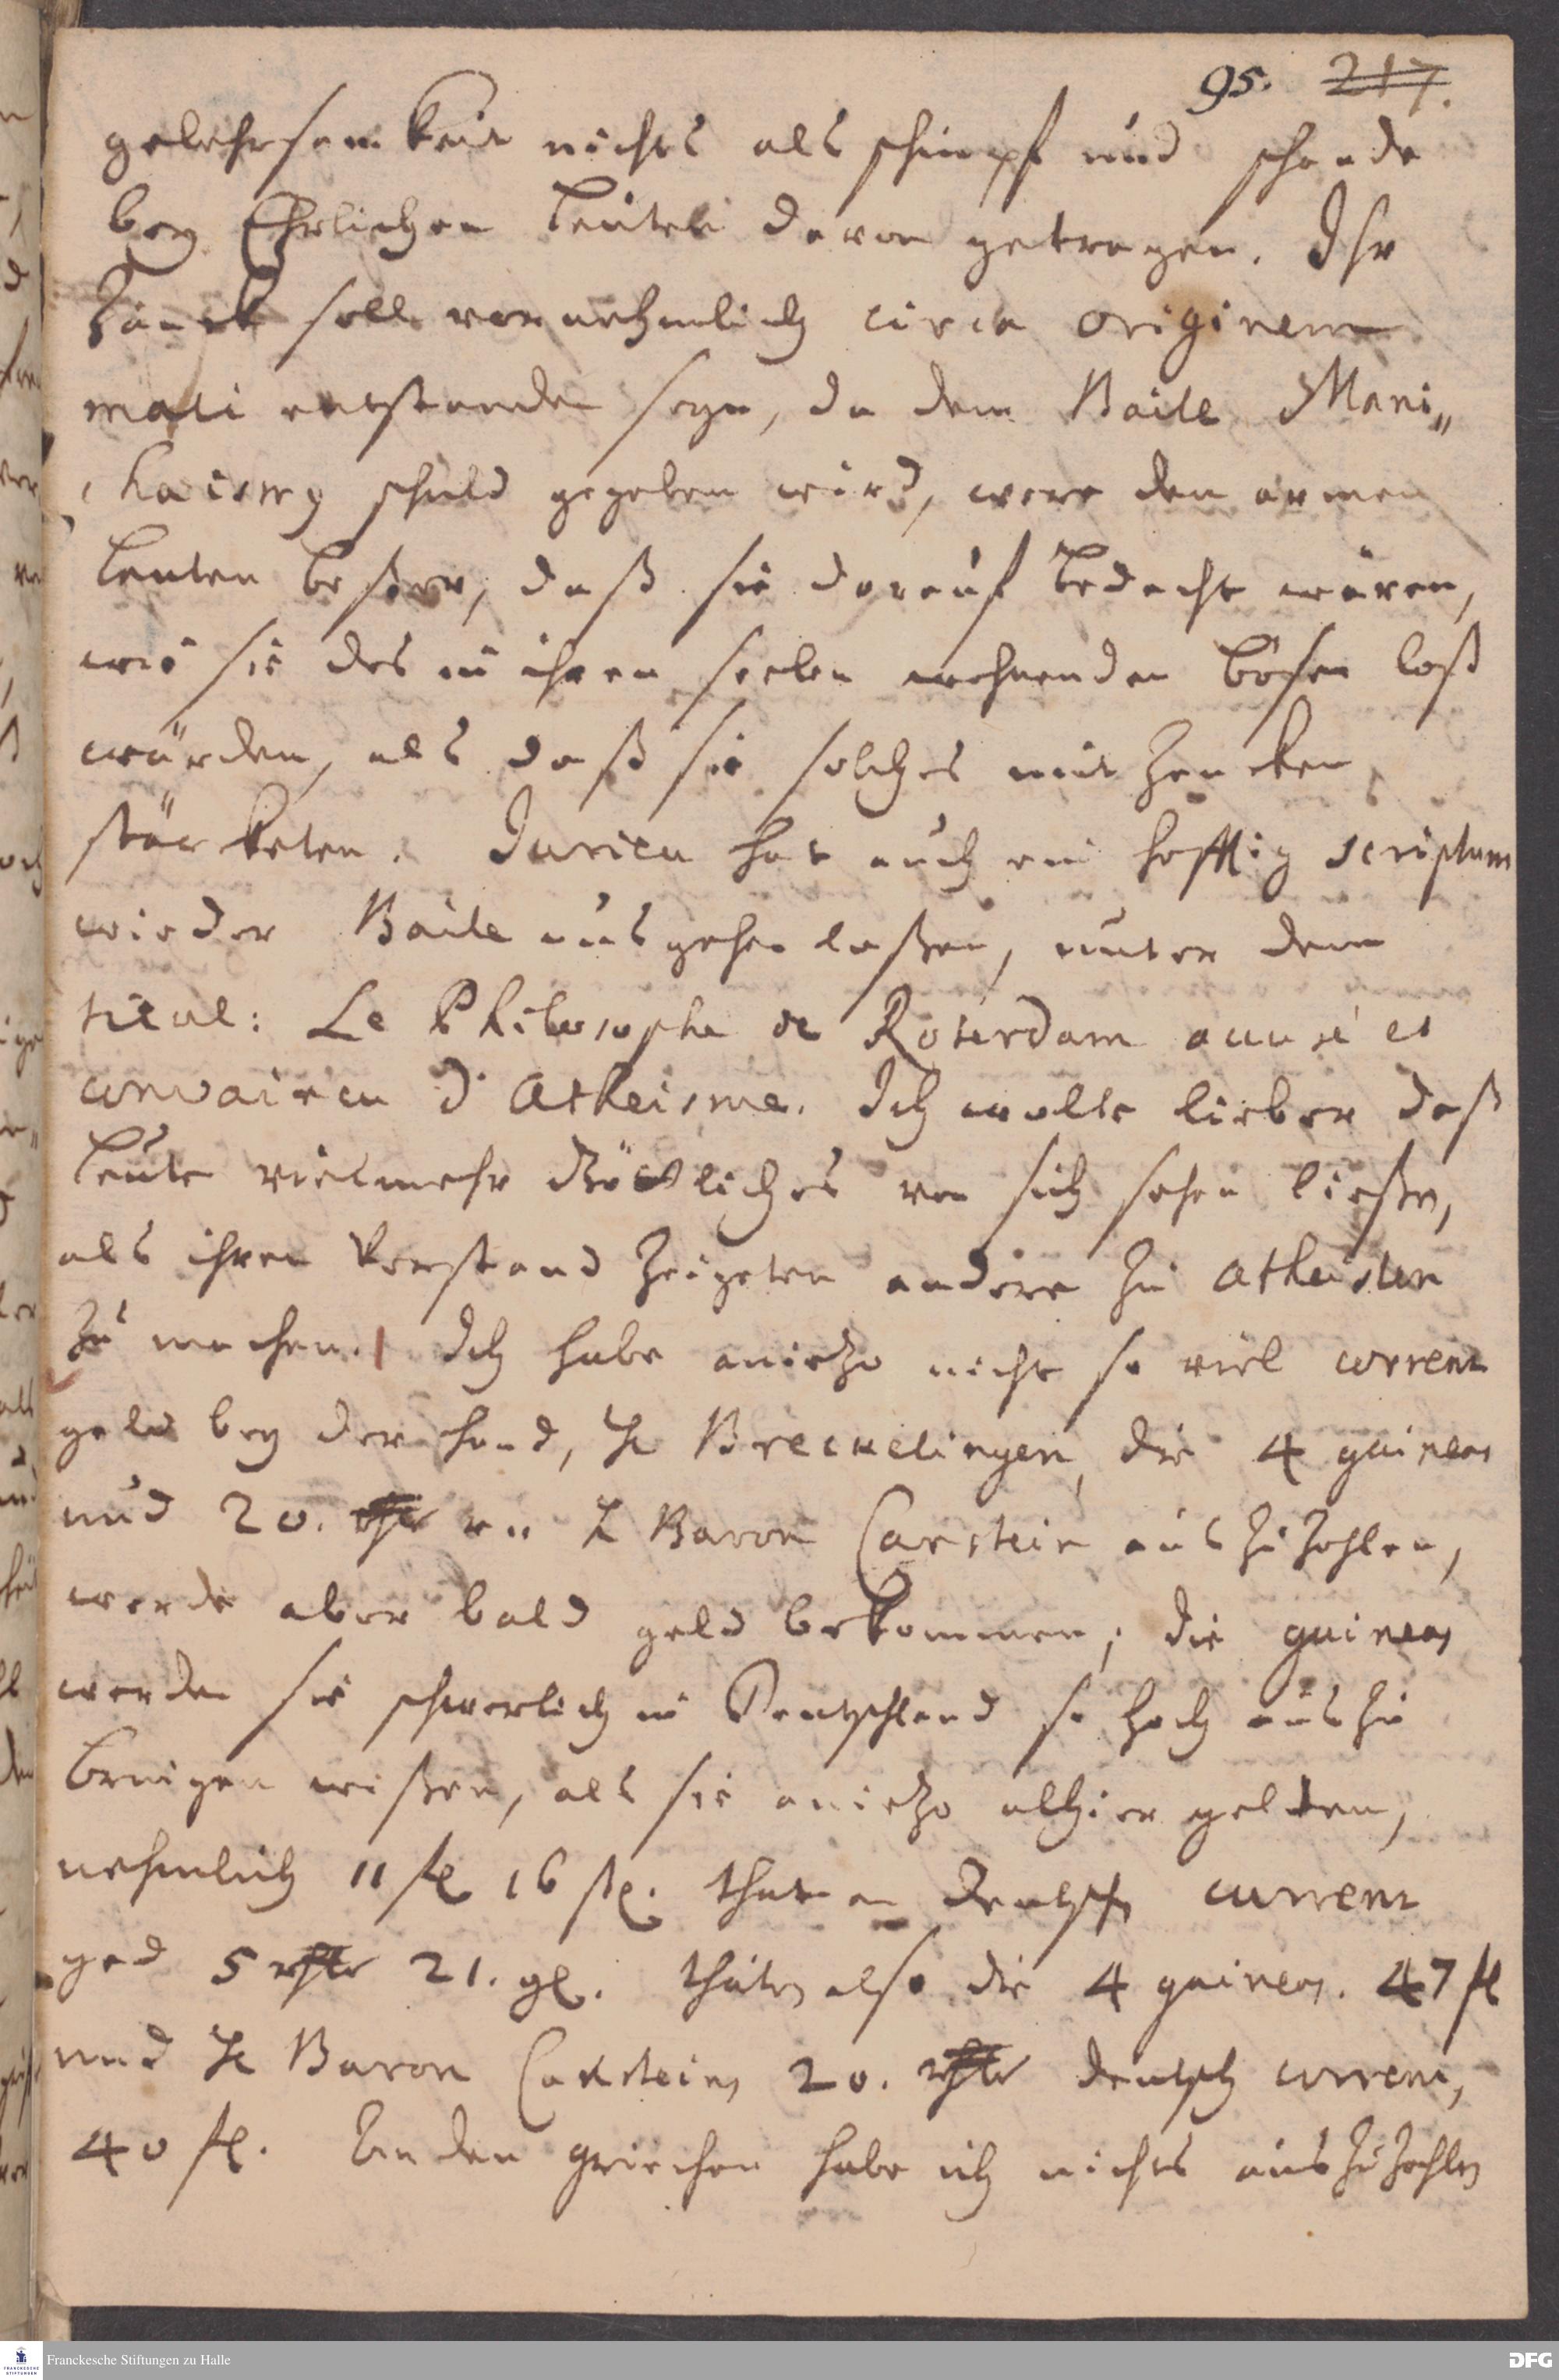 95. 217.
gelehrsamkeit nichts als schimpf und schande
bey Ehrlichen leuten davon getragen. Ihr
Zanck soll vornehmlich circa originem
mali entstanden seyn, da dem Baile Mani„
chaismus schuld gegeben wird, were den armen
leuten beßer, daß sie darauf bedacht wären,
wie sie des in ihren seelen wohnenden bösen loß
würden, als daß sie solches mit zancken
stärketen. Jurieu hat auch ein hefftig scriptum
wieder Baile ausgehen laßen, unter dem
titul: Le Philosophe de Roterdam accusé et
convaincu d'Atheisme. Ich wolte lieber daß
leute vielmehr Göttliches von sich sehen ließen,
als ihren Verstand zeigeten andere zu Atheisten
zu machen. Ich habe anietzo nicht so viel corrent
geld bey der hand, H Breckelingen, die 4 guineas
und 20. rthlr von H Baron Canstein auszuzahlen,
werde aber bald geld bekommen; die guineas
werden sie schwerlich in Deutschland so hoch auszu
bringen wißen, als sie anietzo alhier gelten,
nehmlich 11 fl 16 st. thut an deutsch current
ged 5 rthlr 21. gl. thäten also die 4 guineas. 47 fl
und H Baron Cansteins 20. rthlr deutsch corrent,
40 fl. An den griechen habe ich nichts auszuzahlen
Franckesche Stiftungen zu Halle
DFG